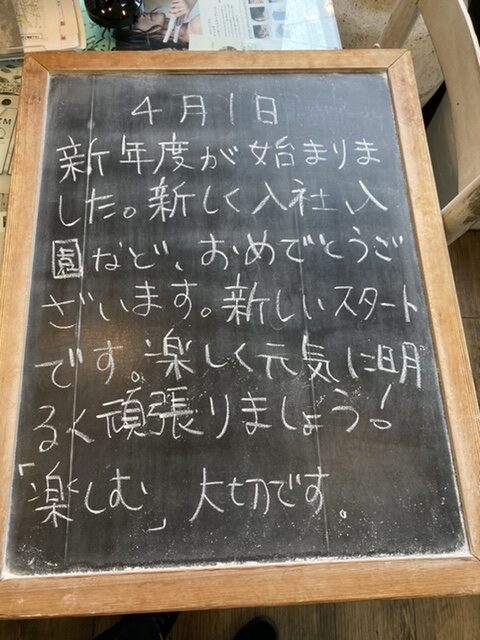 4月1日
新年度が始まりま
した。新しく入社、入
園など、おめでとうご
ざいます。新しいスタート
です。楽しく元気に明
るく頑張りましょう!
「楽しむ」 大切です。